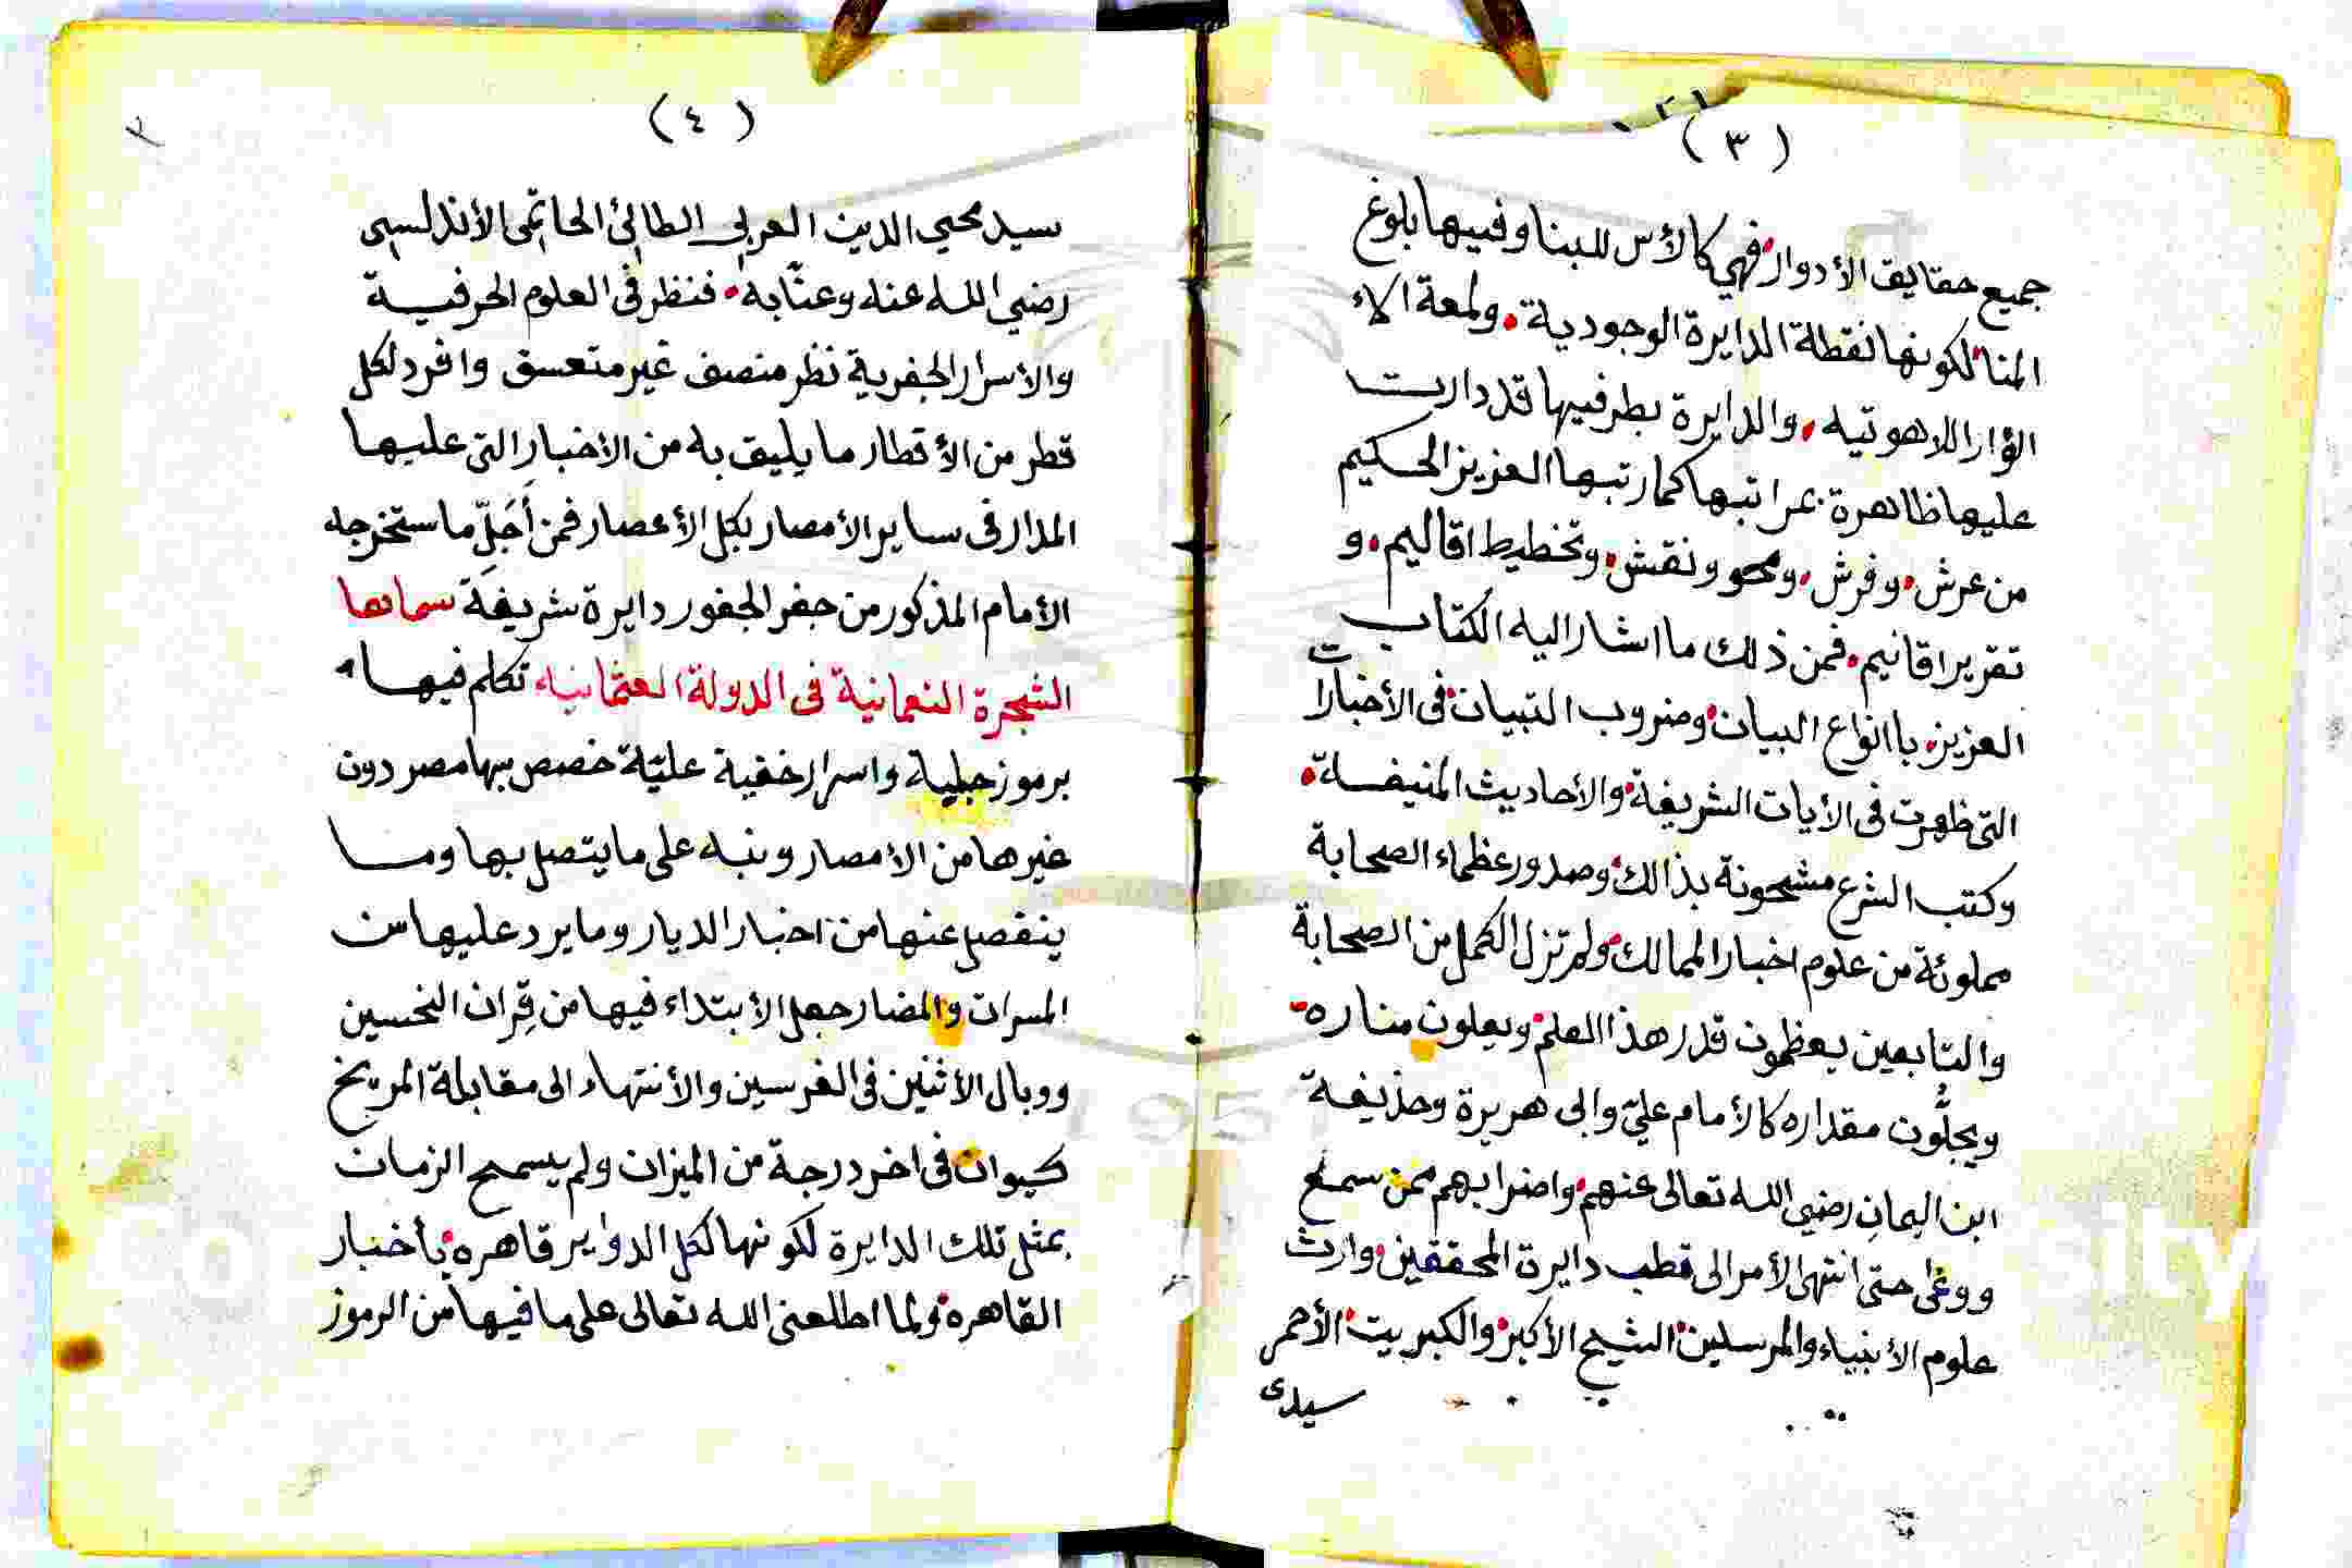 (٣)
جميع حقايق الأدوار فهي كالأس للبنا وفيها بلوغ
المنا لكونها نقطة الدايرة الوجودية ولمعة الاء
اللاهوتيه والدايرة بطرفيها قد دارت
عليها ظاهرة بمراتبها كما رتبها العزيز الحكيم
من عرش وفرش ومحو ونقش وتخطيط اقاليم و
تقرير اقانيم فمن ذلك ما اشار اليه الكتاب
العزيز باانواع البيان وضروب التبيان فى الأخبارات
التى ظهرت فى الأيات الشريفة والأحاديث المنيفة
وكتب الشرع مشحونة بذالك وصدور عظماء الصحابة
مملوئة من علوم اخبار الممالك ولم تزل الكمل من الصحابة
والتابعين يعظمون قدر هذا العلم ويعلون مناره
ويجلّون مقداره كالأمام عليّ وابى هريرة وحذيفة
ابن اليمان رضي الله تعالى عنهم واضرابهم ممن سمع
ووعى حتى انتهى الأمر الى قطب دايرة المحققين وارث
علوم الأنبياء والمرسلين الشيح الأكبر والكبريت الأحمر
سيدى
(٤)
سيد محيي الدين العربي الطائئ الحاتمى الأندلسي
رضي الله عنه وعنّا به فنظر فى العلوم الحرفية
والأسرار الجفرية نظر منصف غير متعسق وافرد لكل
قطر من الأقطار ما يليق به من الأخبار التى عليها
المدار فى ساير الأمصار بكل الأعصار فمن أجَلِّ ما ستخرجه
الأمام المذكور من جفر الجفور دايرة شريفة سماها
الشجرة النعمانية فى الدولة العثمانيه تكلم فيها
برموز جلية واسرار خفية عليّة خصص بها مصر دون
غيرها من الأمصار ونبه على ما يتصل بها وما
ينفصل عنها من اخبار الديار وما يرد عليها من
المسرات والمضار جعل الأبتداء فيها من قِران النحسين
ووبال الأثنين فى الفرسين والأنتهاء الى مقابلة المريخ
كيوان فى اخر درجة من الميزان ولم يسمح الزمان
بمثل تلك الدايرة لكونها لكل الدواير قاهره بأخبار
القاهره ولما اطلعنى الله تعالى على ما فيها من الرموز